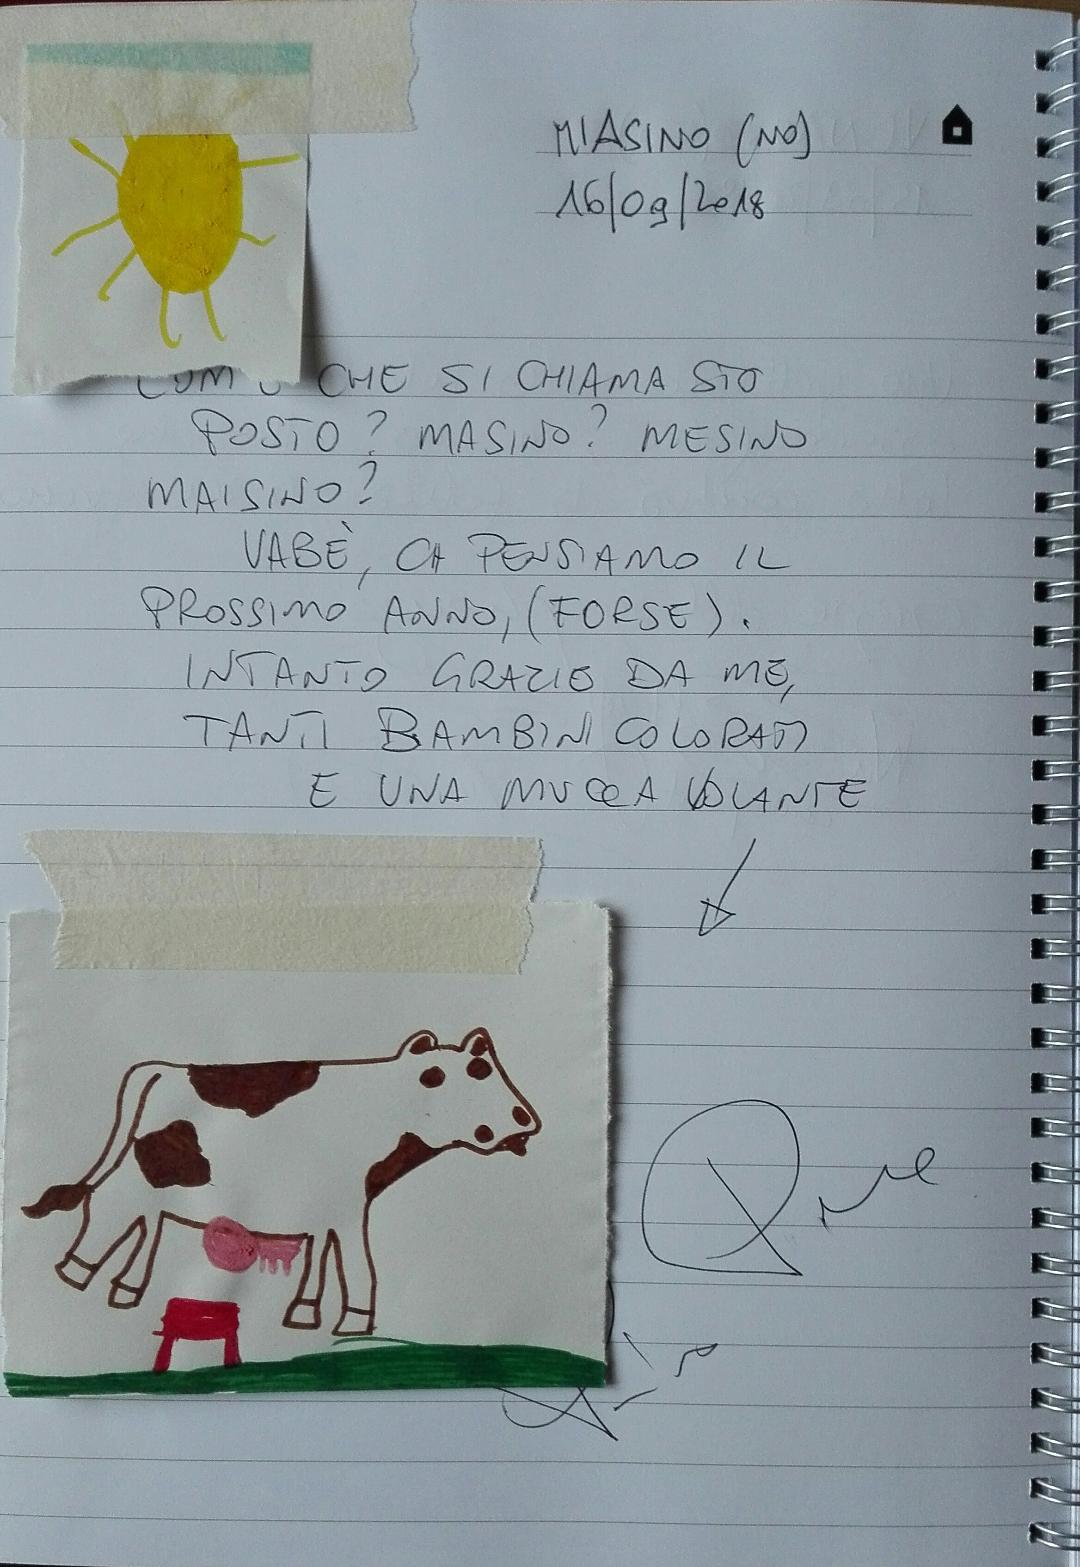 MIASINO (NO)
16/09/2018
COM'È CHE SI CHIAMA STO
POSTO? MASINO? MESINO
MAISINO?
VABÈ, CI PENSIAMO IL
PROSSIMO ANNO, (FORSE).
INTANTO GRAZIE DA ME,
TANTI BAMBINI COLORATI
E UNA MUCCA VOLANTE